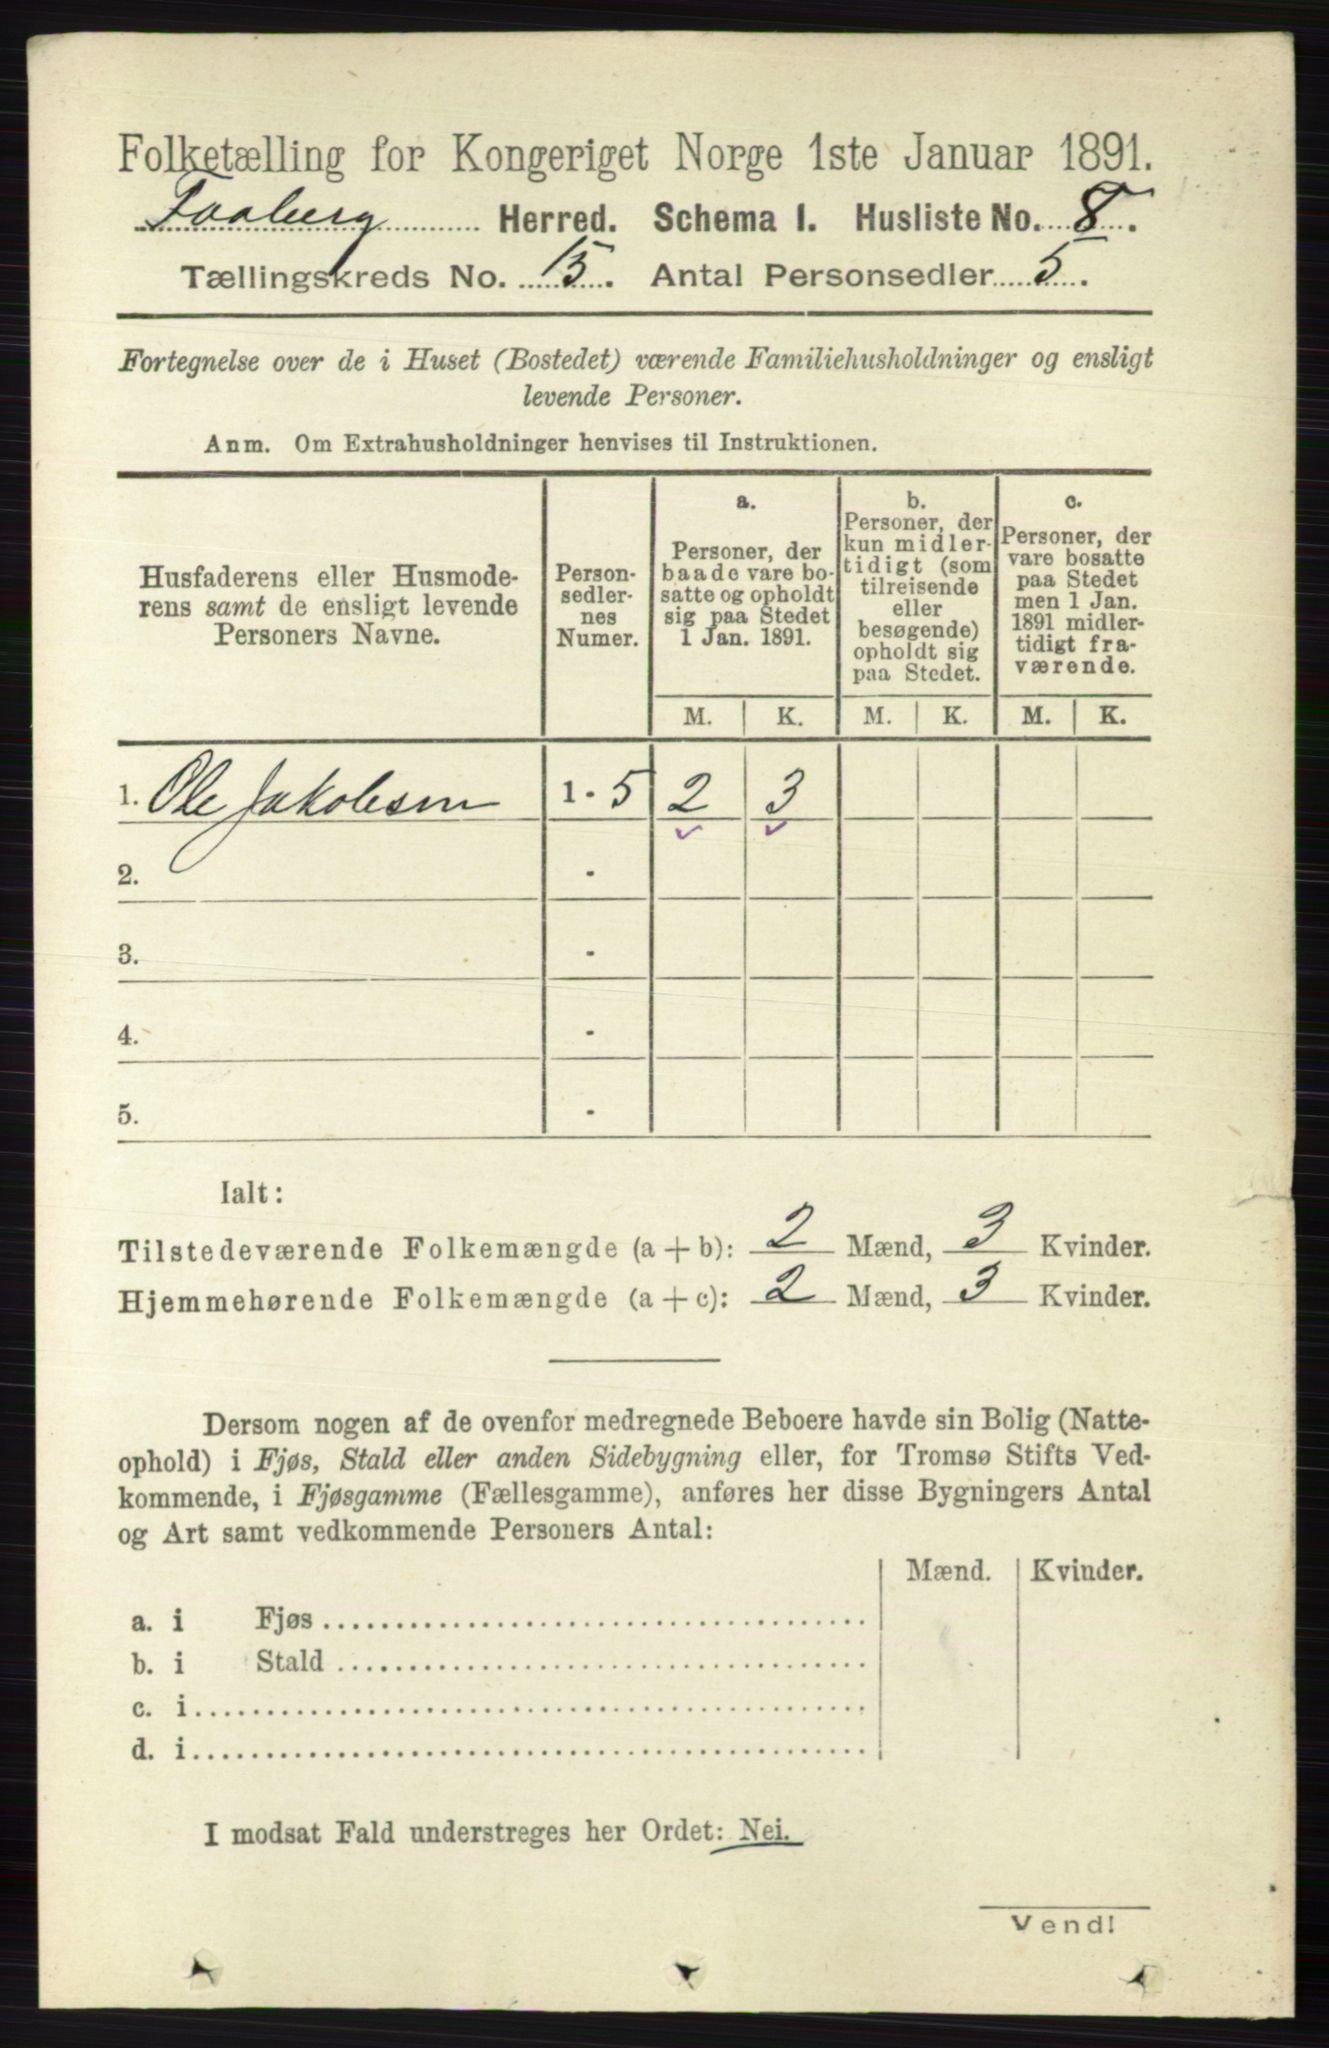 Folketælling for Kongeriget Norge 1ste Januar 1891.
Faaberg Herred. Schema I. Husliste No. 8.
Tællingskreds No. 13. Antal Personsedler 5.
Fortegnelse over de i Huset (Bostedet) værende Familiehusholdninger og ensligt
levende Personer.
Anm. Om Extrahusholdninger henvises til Instruktionen.
Husfaderens eller Husmode-
rens samt de ensligt levende
Personers Navne.
Person-
sedler-
nes
Numer.
a.
Personer, der
baade vare bo-
satte og opholdt
sig paa Stedet
1 Jan. 1891.
b.
Personer, der
kun midler-
tidigt (som
tilreisende
eller
besøgende)
opholdt sig
paa Stedet.
c.
Personer, der
vare bosatte
paa Stedet
men 1 Jan.
1891 midler-
tidigt fra-
værende.
M. K. M. K. M. K.
1. Ole Jakobsen 1 - 5 2 3
2. -
3. -
4. -
5. -
Ialt:
Tilstedeværende Folkemængde (a + b): 2 Mænd, 3 Kvinder.
Hjemmehørende Folkemængde (a + c): 2 Mænd, 3 Kvinder.
Dersom nogen af de ovenfor medregnede Beboere havde sin Bolig (Natte-
ophold) i Fjøs, Stald eller anden Sidebygning eller, for Tromsø Stifts Ved-
kommende, i Fjøsgamme (Fællesgamme), anføres her disse Bygningers Antal
og Art samt vedkommende Personers Antal:
Mænd. Kvinder.
a. i Fjøs
b. i Stald
c. i
d. i
I modsat Fald understreges her Ordet: Nei.
Vend!